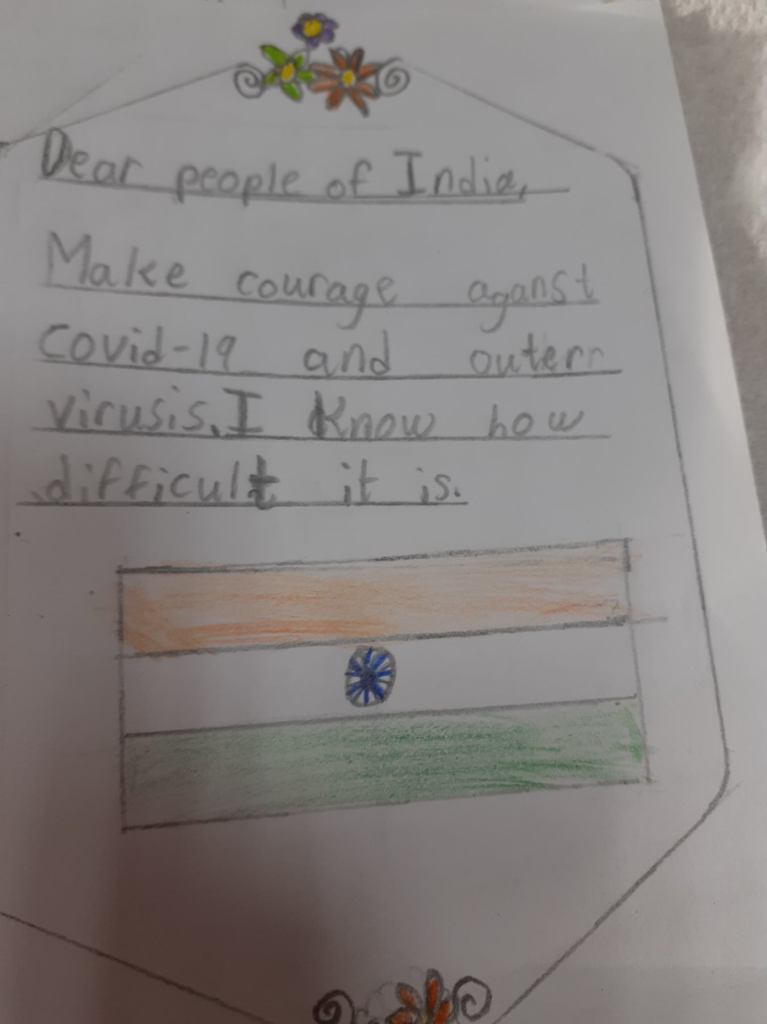 Dear people of India,
Make courage aganst
covid-19 and outerr
virusis. I know how
difficult it is.